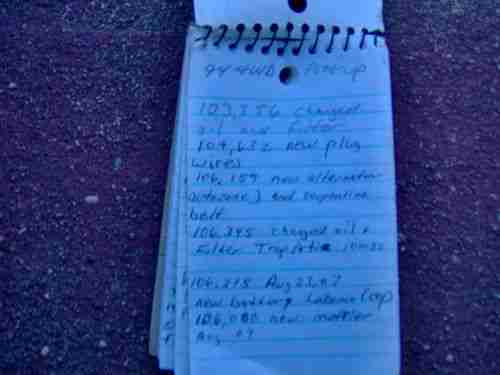 94 4WD Pickup
103,356 changed
oil and filter
104,632 new plug
wires
106,159 new alternator
autozone) and serpentine
belt
106,245 changed oil +
Filter
106,245 Aug 23, 07
new battery
106,000 new muffler
Aug 07